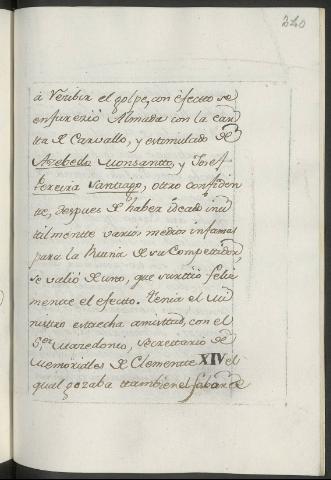 240
à recibir el golpe, con efecto se
enfureziò Almada con la car
ta de Carvallo, y estimulado de
Azebedo Monsanto, y Josef
Pereira Santiago, ottro confiden
te, despues de haber buscado inu
tilmente varios medios infames
para la Ruina de su Competidor,
se valiò de uno, que surttiò feliz
mente el efecto. Tenia el Mi
nistro estrecha amisttad, con el
Sr. Mazedonio, secrettario de
Memoriales de Clemente XIV el
qual gozaba ttambien el fabor de